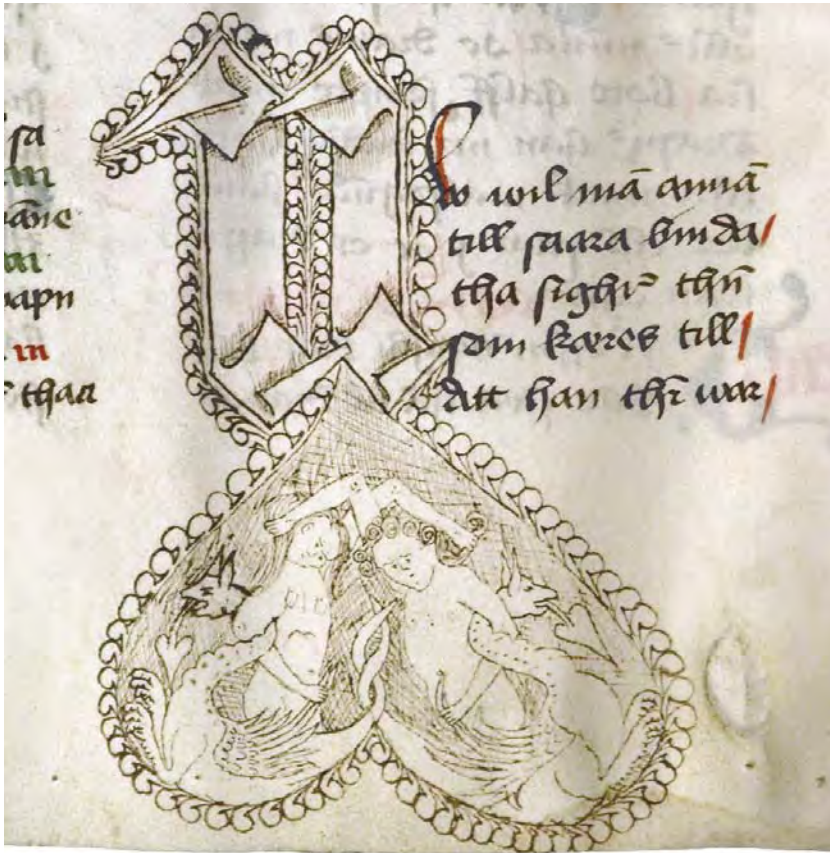 sa
āne
apn
thaa
Nw wil mā annā
till saara binda
tha sighr̄ thn̄
som kæres till
Att han thr̄ war